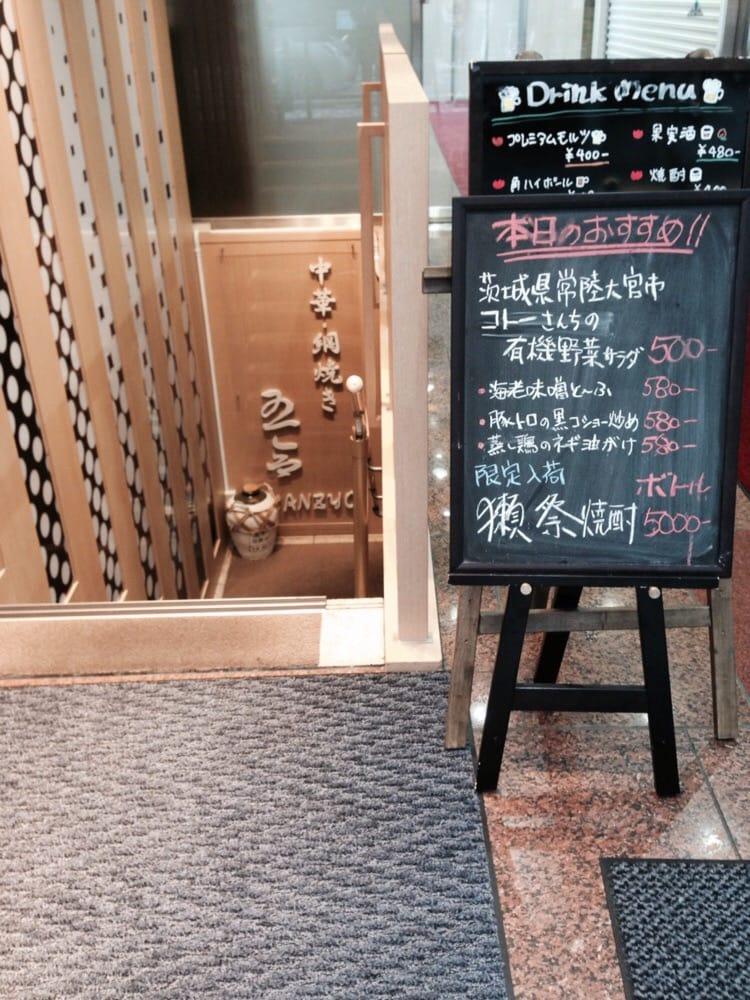 Drink Menu
プレミアムモルツ
¥400-
果実酒
¥480-
角ハイボール
焼酎
本日のおすすめ!!
茨城県常陸大宮市
コトーさんちの
有機野菜サラダ 500-
・海老味噌と〜ふ 580-
・豚トロの黒コショー炒め 580-
・蒸し鶏のネギ油がけ 580-
限定入荷 ボトル
獺祭焼酎 5000-
中華・網焼き
ANZYU